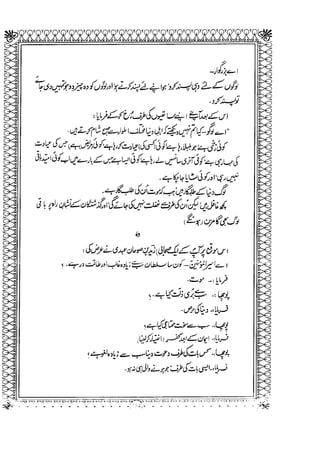 اے بزرگوار۔
لوگوں کے لئے وہی پسند کرو، جو اپنے لئے پسند کرتے ہو اور لوگوں کو وہ چیز دو جو تمہیں دی جائے
تو پسند کرو۔
اس کے بعد آپ نے اپنے ساتھیوں کی طرف رخ کر کے فرمایا:
"اے لوگو۔ کیا تم نہیں دیکھتے کہ اہل دنیا مختلف اطوار سے صبح شام کرتے ہیں۔
کوئی زخمی ہے جو بلبلا رہا ہے کوئی کسی کی عیادت کر رہا ہے کوئی مریض ہے جس کی عیادت
کی جا رہی ہے کوئی آخری سانسیں لے رہا ہے کوئی ایسا ہے جس کے بارے میں اب کوئی امید باقی
نہیں رہی اور کوئی جا چکا ہے۔
لوگ دنیا کے طلبگار ہیں جب کہ موت ان کی طلب گار ہے۔
کچھ غافل ہیں لیکن ان کی طرف سے غفلت نہیں کی جائے گی اور گذشتگان کے نشان راہ پر باقی
لوگ بھی گامزن رہیں گے
اس موقع پر آپ کے ایک صحابی زید بن صوحان عبدی نے عرض کی:
"اے امیر المومنین۔ کون سا سلطان سب سے زیادہ غالب اور طاقت ور ہے۔؟
فرمایا:۔ موت۔
پوچھا:۔ سب سے بڑی ذلت کیا ہے۔؟
فرمایا:۔ دنیا کی حرص۔
پوچھا۔ سب سے سخت محتاجی کیا ہے؟
فرمایا:۔ ایمان کے بعد کفر (اختیار کر لینا)
پوچھا:۔ کس بات کی طرف دعوت دینا سب سے زیادہ ہے؟
فرمایا:۔ ایسی بات کی طرف جو ہونے والی ہی نہ ہو۔